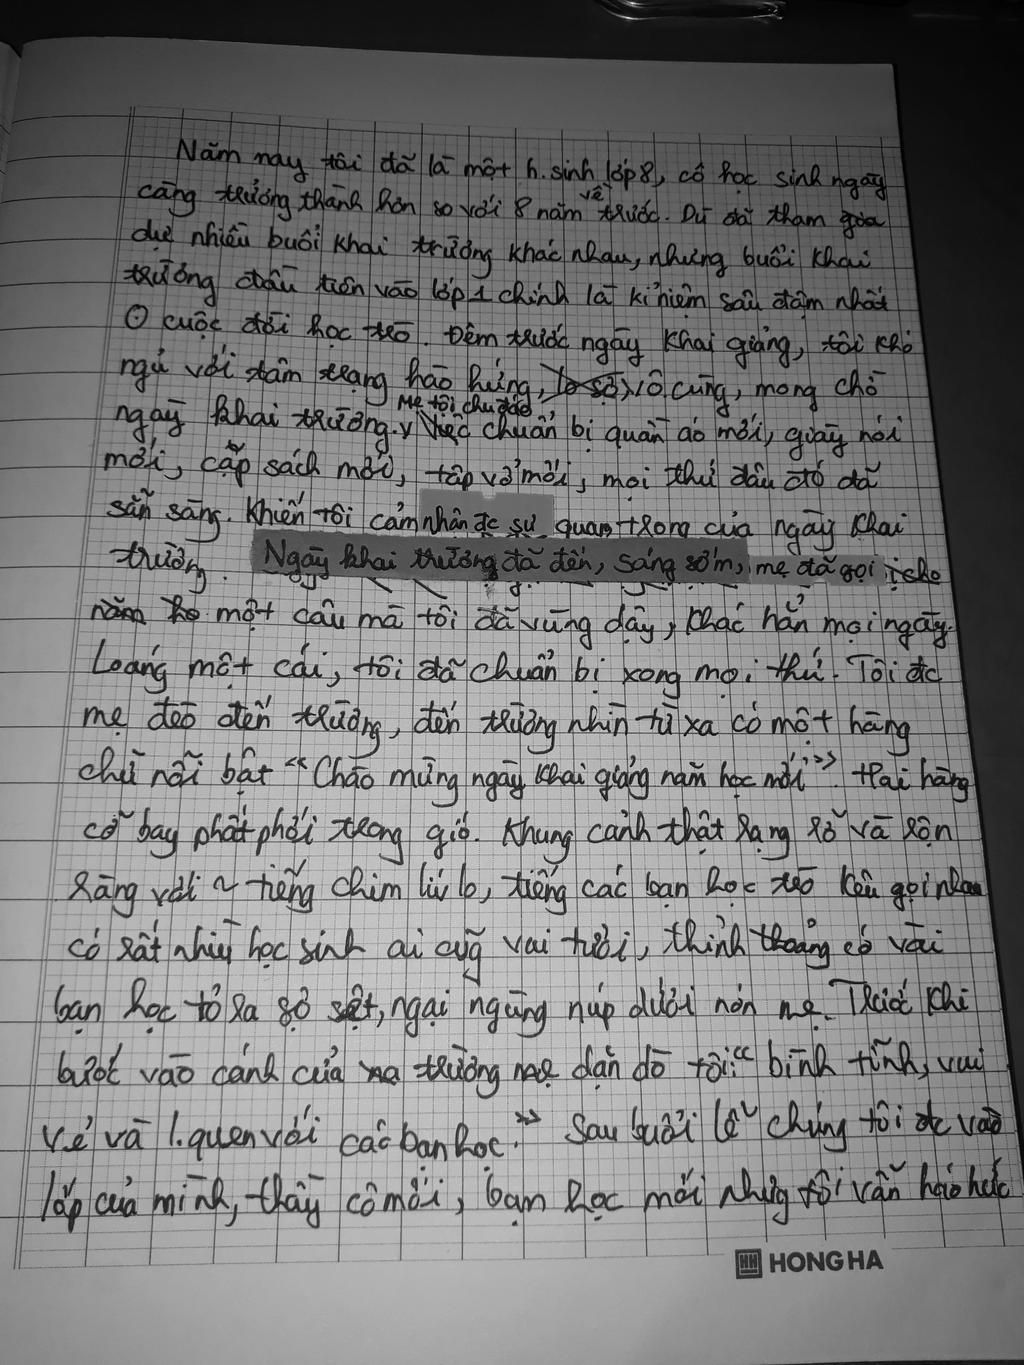 Năm nay tôi đã là một h.sinh lớp 8, cô học sinh ngày
càng trưởng thành hơn so với 8 năm về trước. Dù đã tham gia
dự nhiều buổi khai trường khác nhau, nhưng buổi khai
trường đầu tiên vào lớp 1 chính là kỉ niệm sâu đậm nhất
Ở cuộc đời học trò. Đêm trước ngày khai giảng, tôi khó
ngủ với tâm trạng háo hứng, vô cùng, mong chờ
ngày khai trường. Mẹ tôi chu đáo Việc chuẩn bị quần áo mới, giày nới
mới, cặp sách mới, tập vở mới, mọi thứ đâu đó đã
sẵn sàng. Khiến tôi cảm nhận đc sự quan trọng của ngày khai
trường. Ngày khai trường đã đến, sáng sớm, mẹ đã gọi
một câu mà tôi đã vùng dậy, khác hẳn mọi ngày.
Loáng một cái, tôi đã chuẩn bị xong mọi thứ. Tôi đc
mẹ đèo đến trường, đến trường nhìn từ xa có một hàng
chữ nổi bật "Chào mừng ngày khai giảng năm học mới". Hai hàng
cờ bay phất phới trong gió. Khung cảnh thật rạng rỡ và rộn
ràng với ~ tiếng chim líu lo, tiếng các bạn học trò kêu gọi nhau
có rất nhiều học sinh ai cũg vui tươi, thỉnh thoảng có vài
bạn học tỏ ra sợ sệt, ngại ngùng núp dưới nón mẹ. Trước khi
bước vào cánh cửa trường mẹ dặn dò tôi: "bình tĩnh, vui
vẻ và l.quen với các bạn học." Sau buổi lễ chúng tôi đc vào
lớp của mình, thầy cô mới, bạn học mới nhưg tôi vẫn háo hức
HONG HA